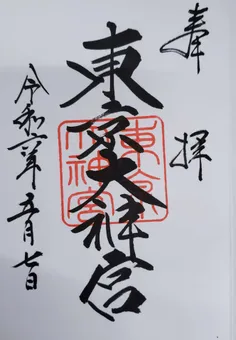 奉拝
東京大神宮
東京
大神宮
令和六年五月七日